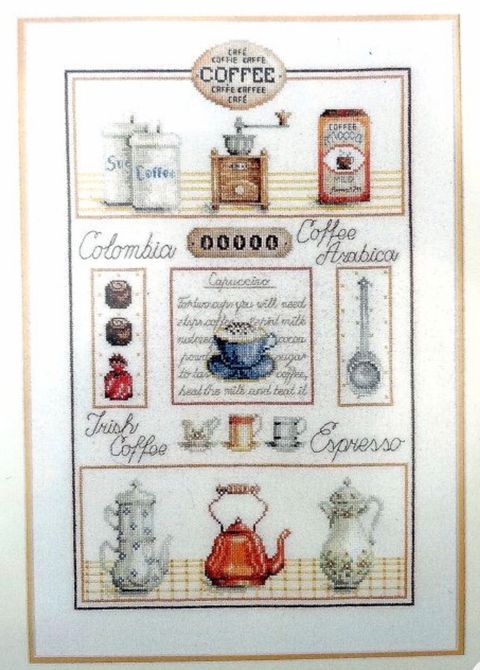 CAFÉ
COFFIE KAFFE
COFFEE
CAFFE KAFFEE
CAFÉ
Su
Coffee
COFFEE
mocca
MILD
Colombia
Coffee
Arabica
Capuccino
For two cups you will need
milk
cocoa
sugar
coffee,
heat the milk and beat it
Irish
Coffee
Espresso